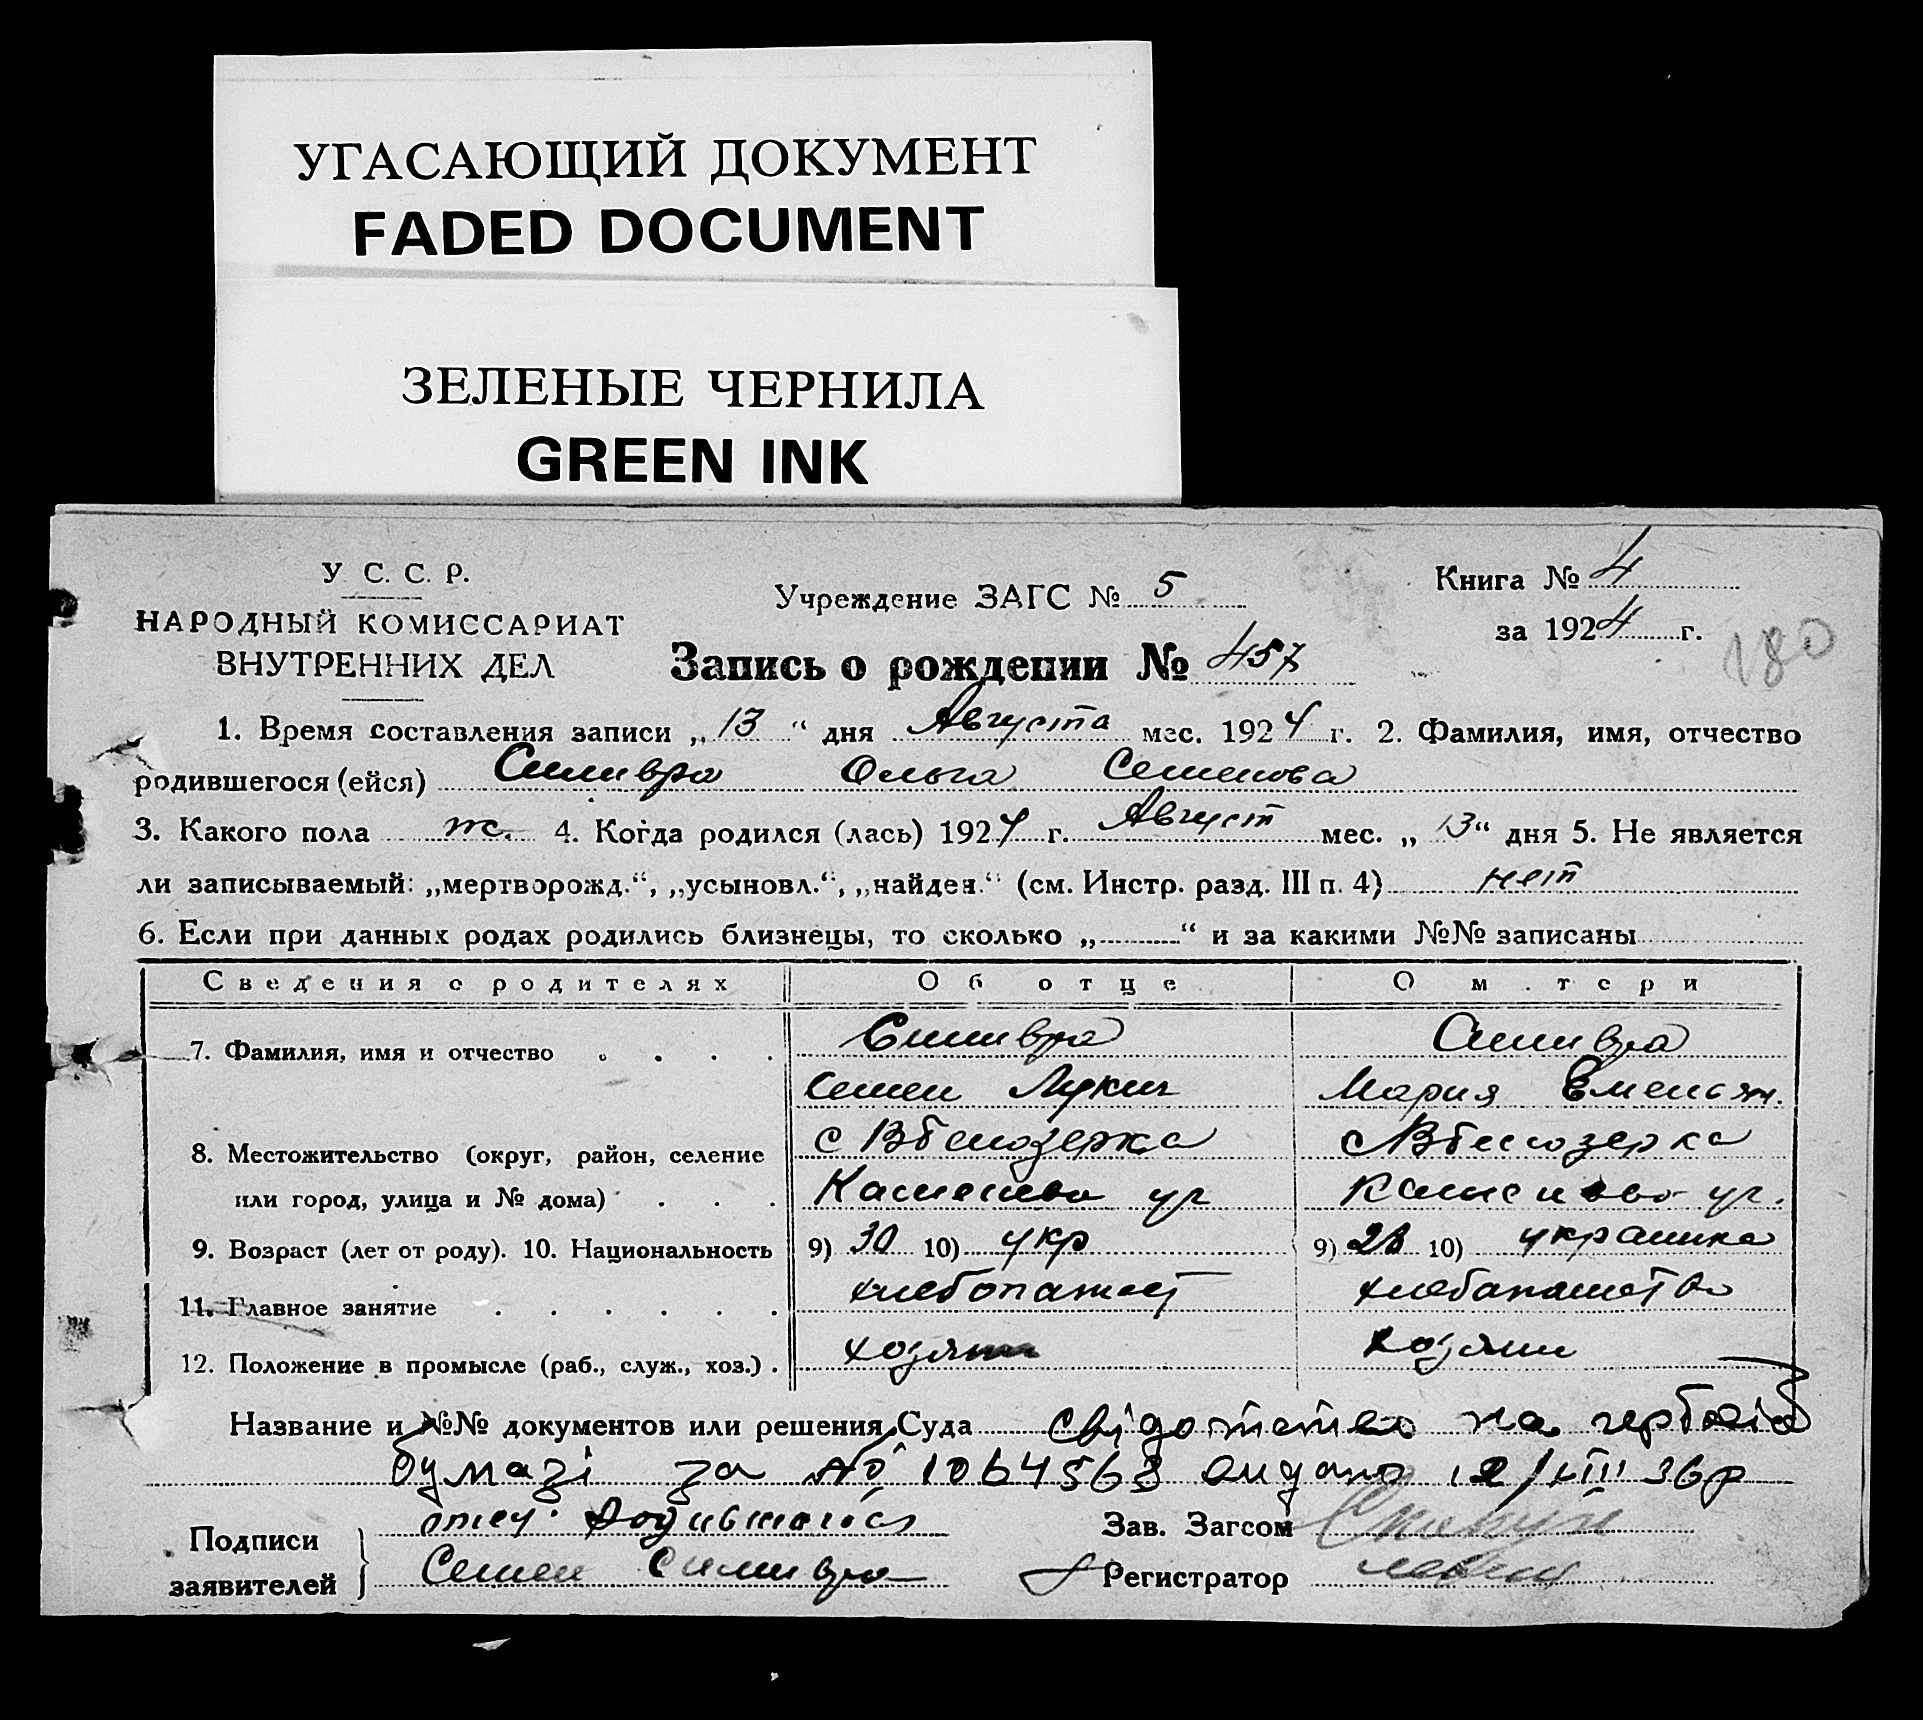 УГАСАЮЩИЙ ДОКУМЕНТ
FADED DOCUMENT
ЗЕЛЕНЫЕ ЧЕРНИЛА
GREEN INK
У. С. С. Р.
НАРОДНЫЙ КОМИССАРИАТ
ВНУТРЕННИХ ДЕЛ
Учреждение ЗАГС № 5
Книга № 4
за 1924 г.
180
Запись о рождении № 457
1. Время составления записи „13“ дня Августа мес. 1924 г. 2. Фамилия, имя, отчество
родившегося (ейся) Силивра Ольга Семенова
3. Какого пола ж. 4. Когда родился (лась) 1924 г. Август мес. „13“ дня 5. Не является
ли записываемый: „мертворожд.“, „усыновл.“, „найден.“ (см. Инстр. разд. III п. 4) нет
6. Если при данных родах родились близнецы, то сколько „ “ и за какими №№ записаны
Сведения о родителях Об отце О матери
7. Фамилия, имя и отчество Силивра Силивра
Семен Лукич Мария Емельян.
8. Местожительство (округ, район, селение с Вбелозерка с Вбелозерка
или город, улица и № дома) ул ул.
9. Возраст (лет от роду). 10. Национальность 9) 30 10) укр 9) 28 10) украинка
11. Главное занятие хлебопашест хлебопашество
12. Положение в промысле (раб., служ., хоз.) хозяин хозяин
Название и №№ документов или решения Суда на гербовій
бумазі за № 1064568 видано 12/VIII 36р
Подписи заявителей отец
Семен Силивра
Зав. Загсом
Регистратор